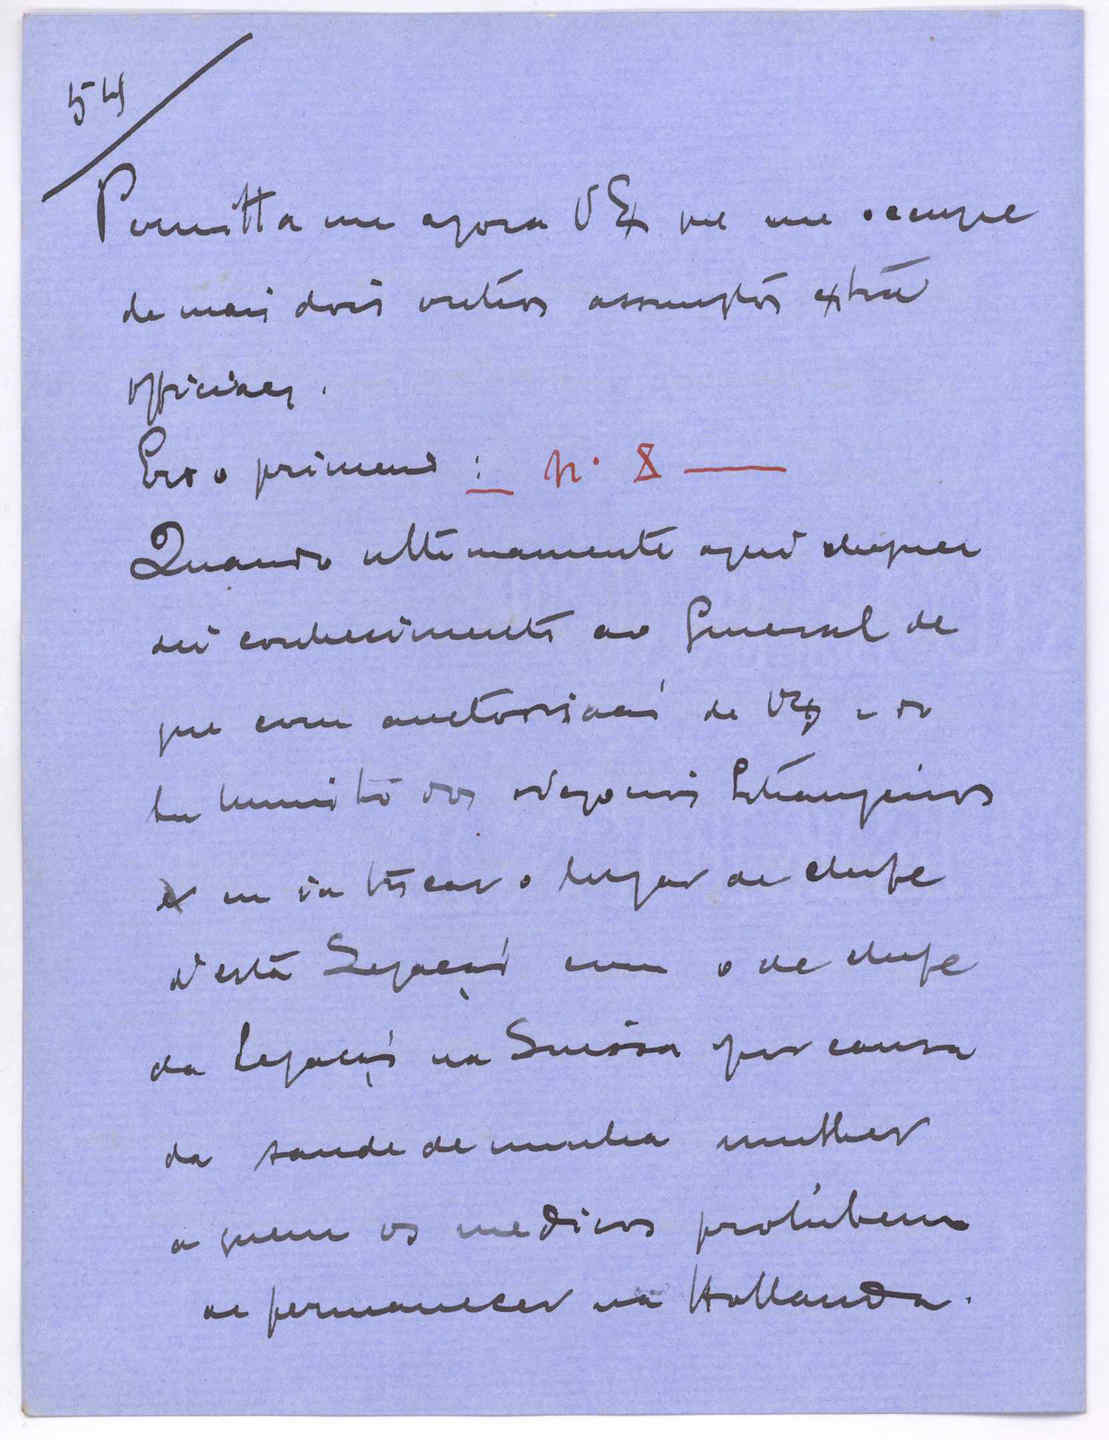 54
Permitta me agora V Ex que me occupe
de mais dois outros assumptos extra
officiaes.
Eis o primeiro : Nº 8
Quando ultimamente aqui cheguei
dei conhecimento ao General de
que com auctorisação de V Ex e do
Sr Ministro dos Negocios Estrangeiros
eu ia trocar o lugar de chefe
d'esta Legação com o de chefe
da Legação na Suissa por causa
da saude de minha mulher
a quem os medicos prohibem
de permanecer na Hollanda.